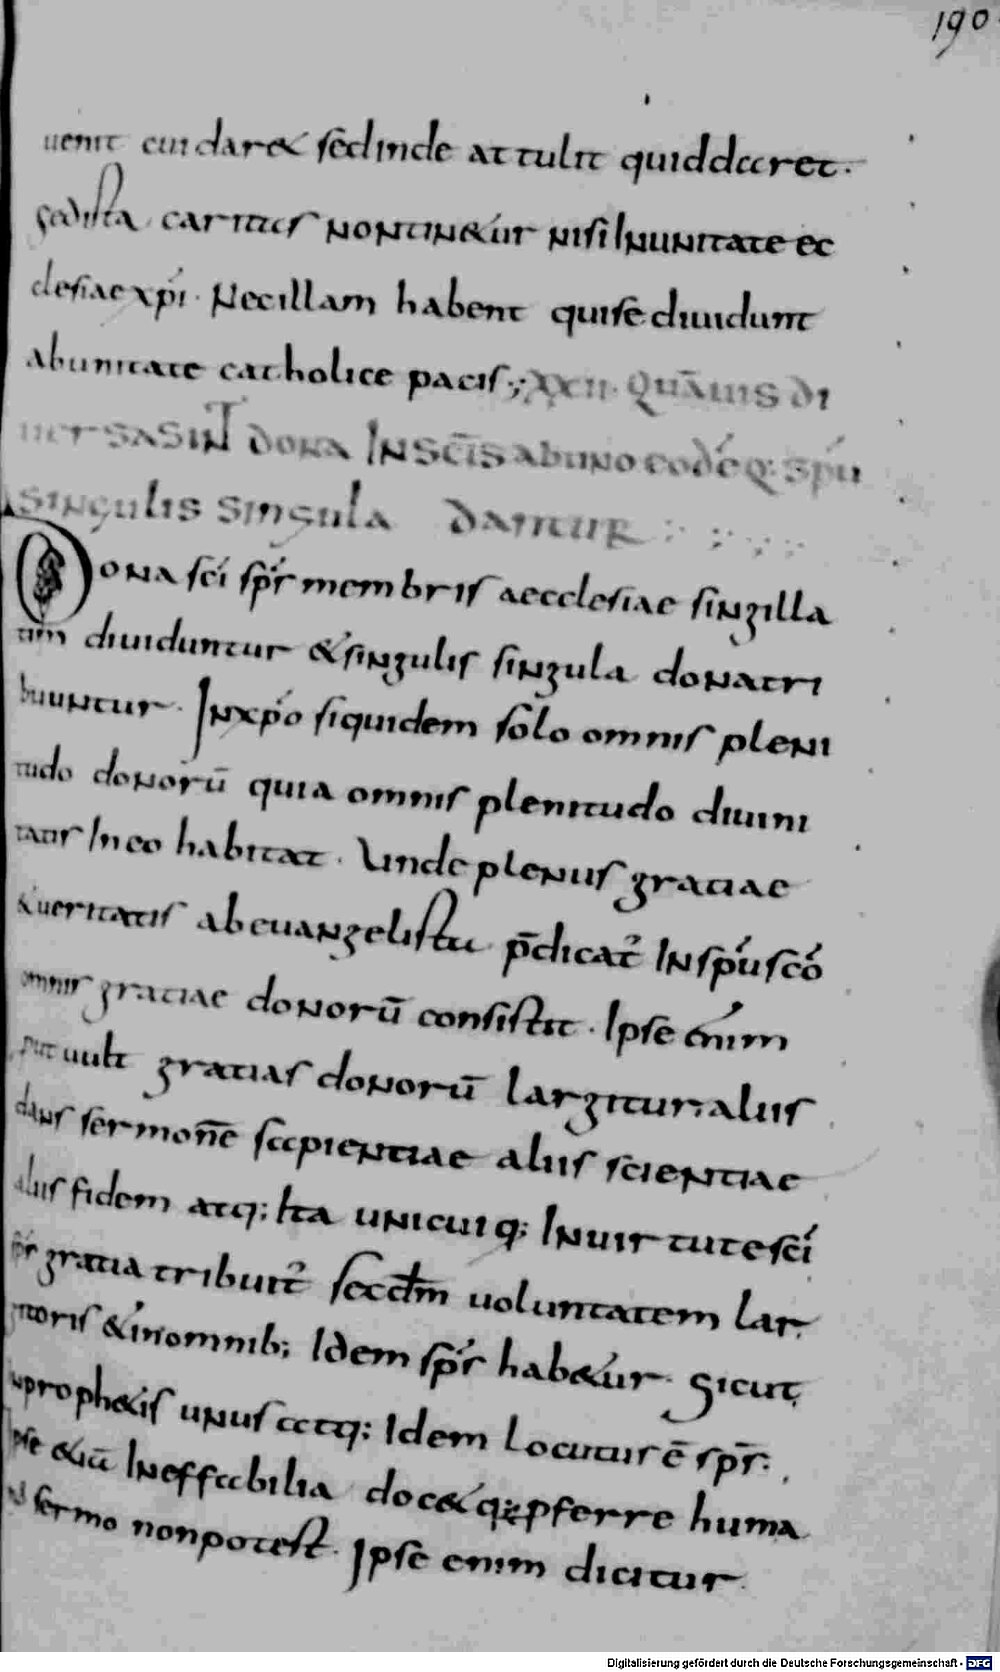 190
uenit cui dar& sed inde attulit quid daret.
Sed ista caritas non tin&ur nisi In unitate ec
clesiae xpi. Nec illam habent qui se diuidunt
ab unitate catholice pacis; XXII. Quāuis di
uersa SINT dona In sc̄is ab uno eodēq; spū
singulis singula dantur
Dona sci spr̄ membris aecclesiae singilla
tim diuiduntur & singulis singula dona tri
buuntur. In xpo siquidem solo omnis pleni
tudo donorū quia omnis plenitudo diuini
tatis In eo habitat. Unde plenus gratiae
& ueritatis ab euangelista p̄dicat̉ In spu sco
omnis gratiae donorū consistit. Ipse enim
put uult gratias donorū largitur. aliis
dans sermonē sapientiae aliis scientiae
aliis fidem atq; Ita unicuiq; In uirtute sci
spr̄ gratia tribuit̉ secdm uoluntatem lar
gitoris & in omnib; Idem spr̄ hab&ur. Sicut
In proph&is unus atq; Idem locutus ē spr̄.
Ipse &iā Ineffabilia doc& quę pferre huma
n sermo non potest. Ipse enim dicitur
Digitalisierung gefördert durch die Deutsche Forschungsgemeinschaft - DFG